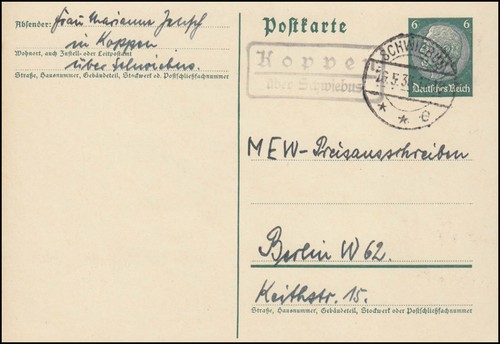 Absender: Frau Marianne Jensch
in Koppen
Wohnort, auch Zustell- oder Leitpostamt
über Schwiebus.
Straße, Hausnummer, Gebäudeteil, Stockwerk od. Postschließfachnummer
Postkarte
Koppen
über Schwiebus
SCHWIEBUS
* * e
6 6
Deutsches Reich
MEW-Preisausschreiben
Berlin W 62.
Keithstr. 15.
Straße, Hausnummer, Gebäudeteil, Stockwerk oder Postschließfachnummer